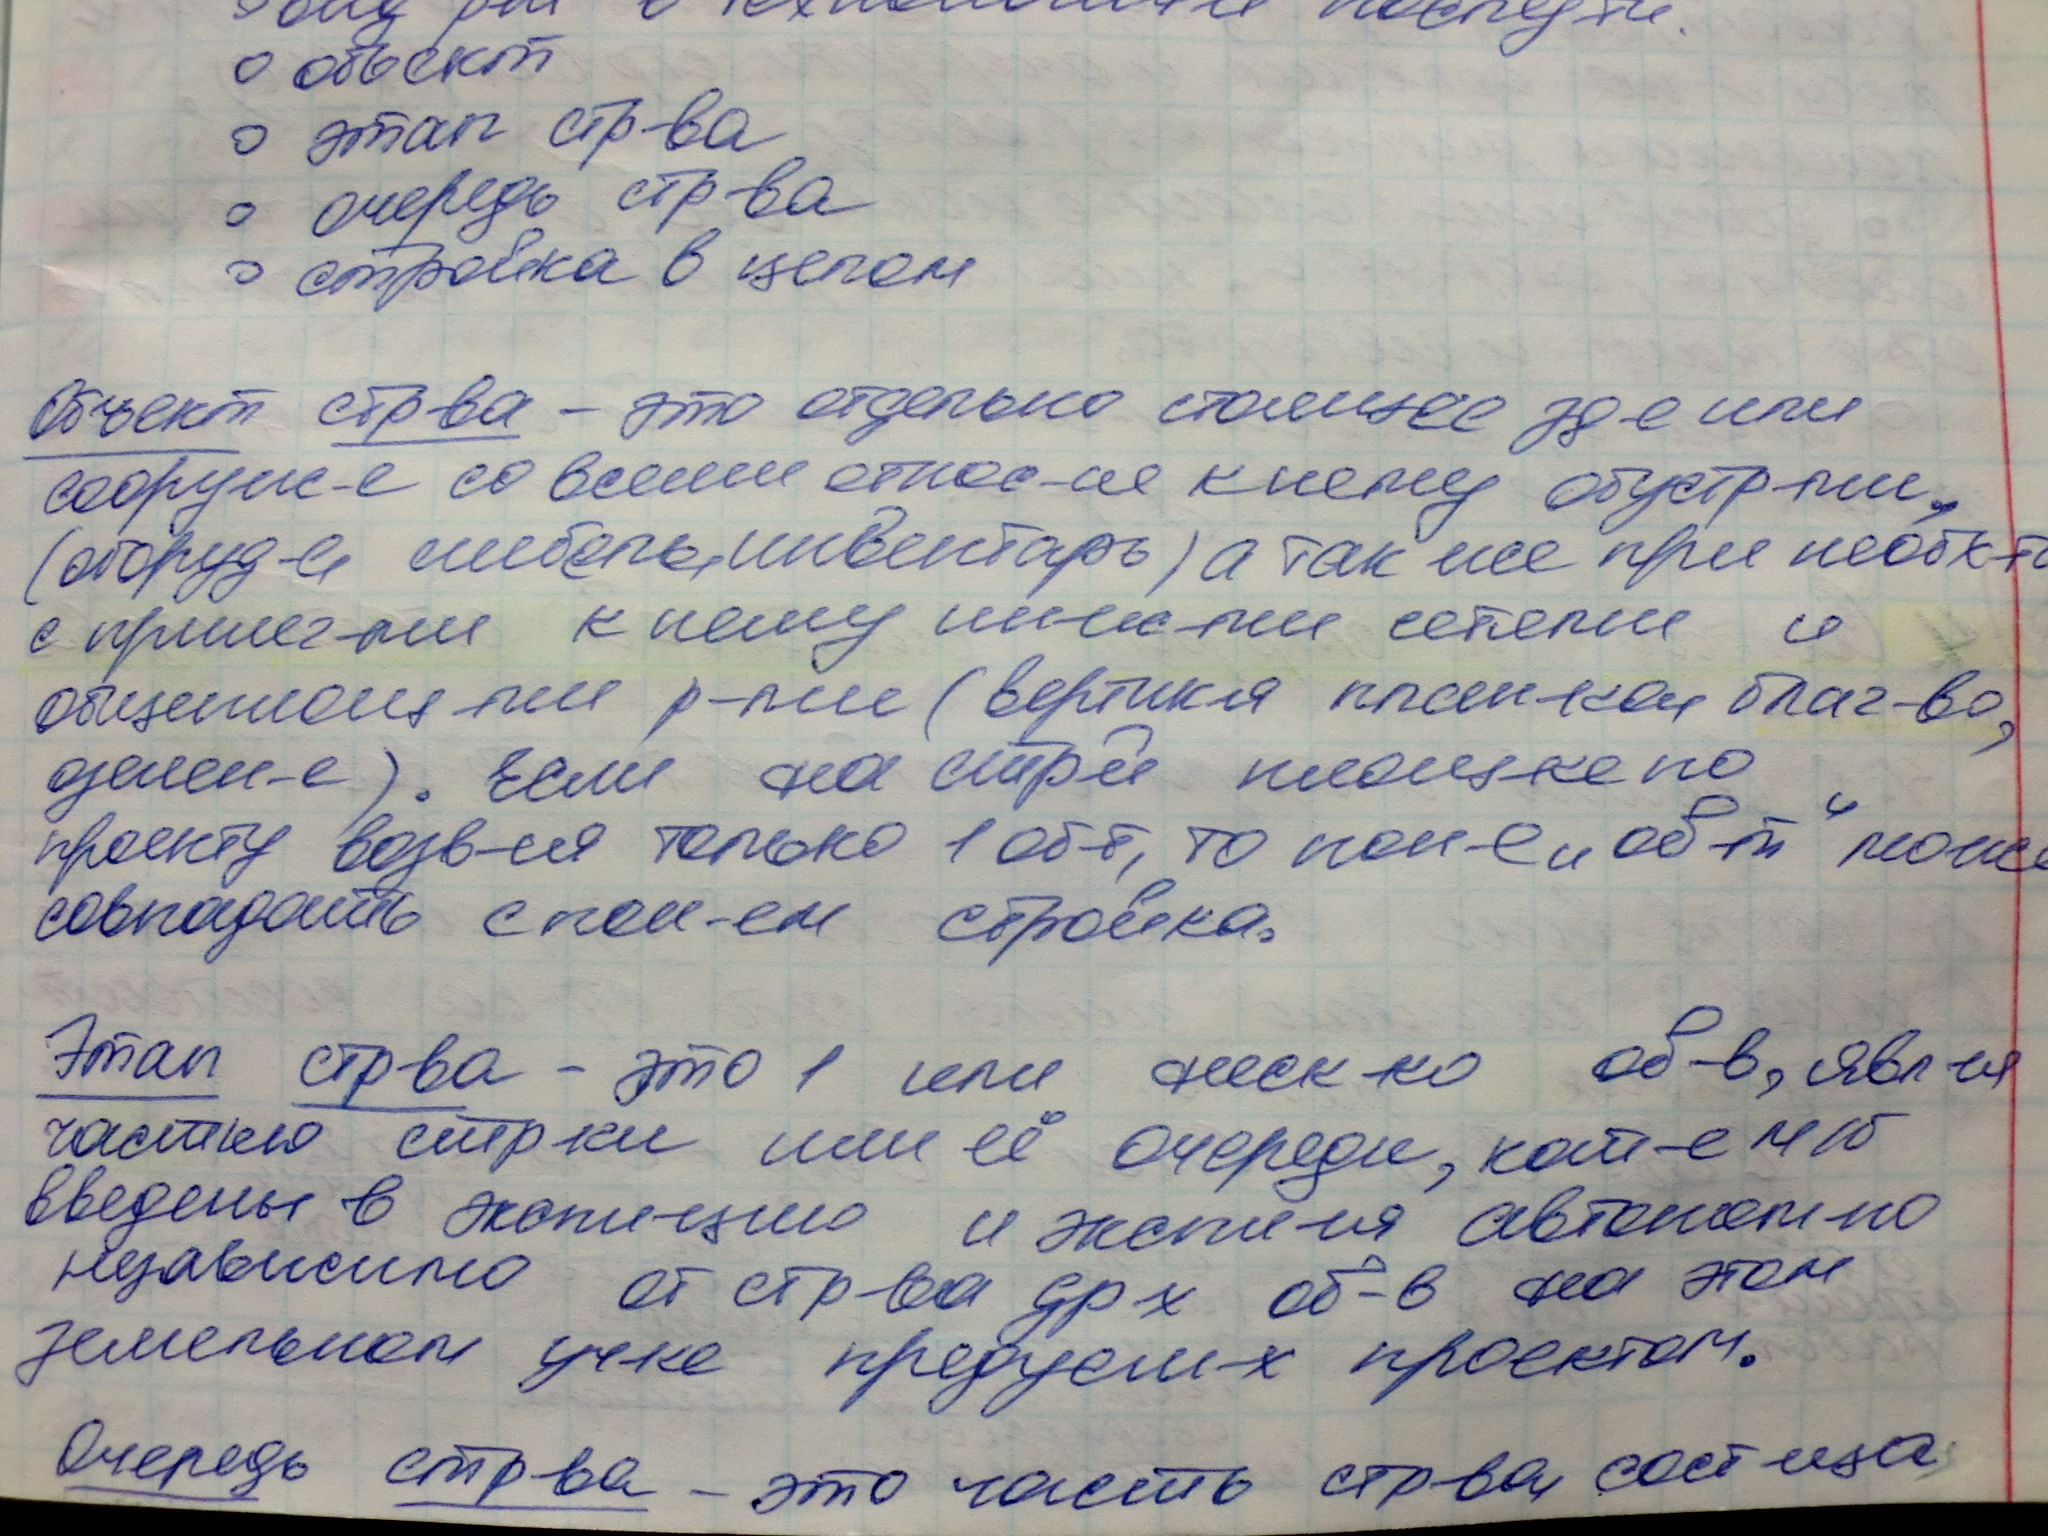 объект
этап стр-ва
очередь стр-ва
стройка в целом
Объект стр-ва - это отдельно стоящее зд-е или
сооруж-е со всеми относ-ся к нему обустр-ми,
(оборуд-е, мебель, инвентарь) а так же при необх-ти
с прилег-ми к нему инж-ми сетями и
общеплощ-ми р-ми (вертик-я план-ка, благ-во,
озелен-е). Если на стр-й площ-ке по
проекту возв-ся только 1 об-т, то пон-е „об-т“ може
совпадать с пон-ем стройка.
Этап стр-ва - это 1 или неск-ко об-в, явл-ся
частью стр-ки или её очереди, кот-е м/б
введены в экспл-цию и экспл-ся автономно
независимо от стр-ва др-х об-в на этом
земельном уч-ке предусм-х проектом.
Очередь стр-ва - это часть стр-ва, сост-ща